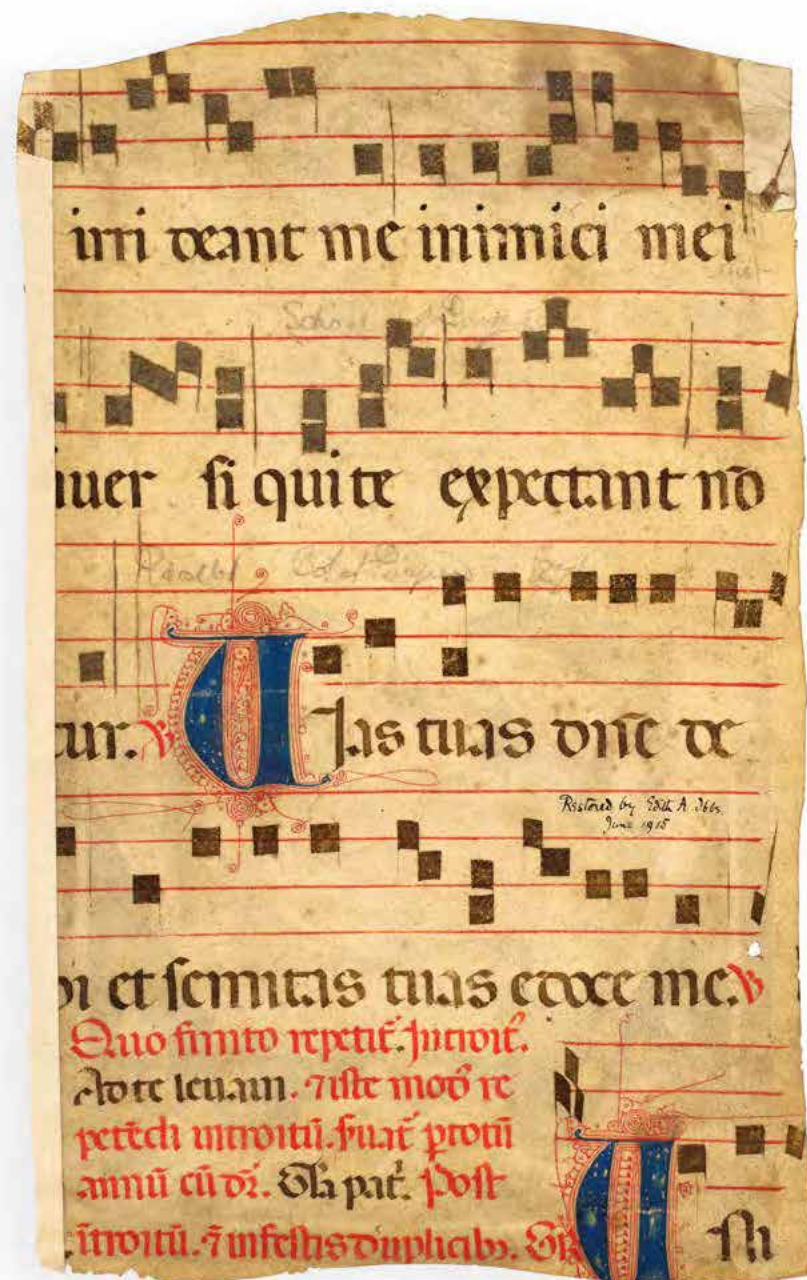 irri deant me inimici mei
iuer si qui te expectant nō
tur. ℣ Uias tuas dn̄e de
Restored by Edith A. Ibbs.
June 1915
et semitas tuas edoce me. ℣
Quo finito repetit̉. Introit̉.
Ad te leuaui. ⁊ iste mod̉ re
petēdi introitū. s̉uat̉ p̱ totū
annū cū d̉r. Gl̉a pat̉. Post
ītroitū. ⁊ in festis duplicib̉. G℟ Uni